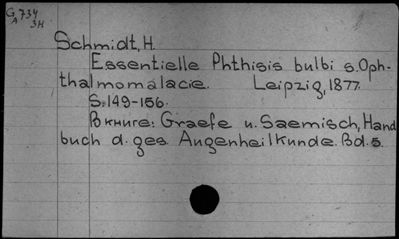 G 734
A 3H
Schmidt, H.
Essentielle Phthisis bulbi s. Oph-
thalmomalacie. Leipzig, 1877.
S. 149-156.
В книге: Graefe u. Saemisch, Hand
buch d. ges. Augenheilkunde. Bd. 5.